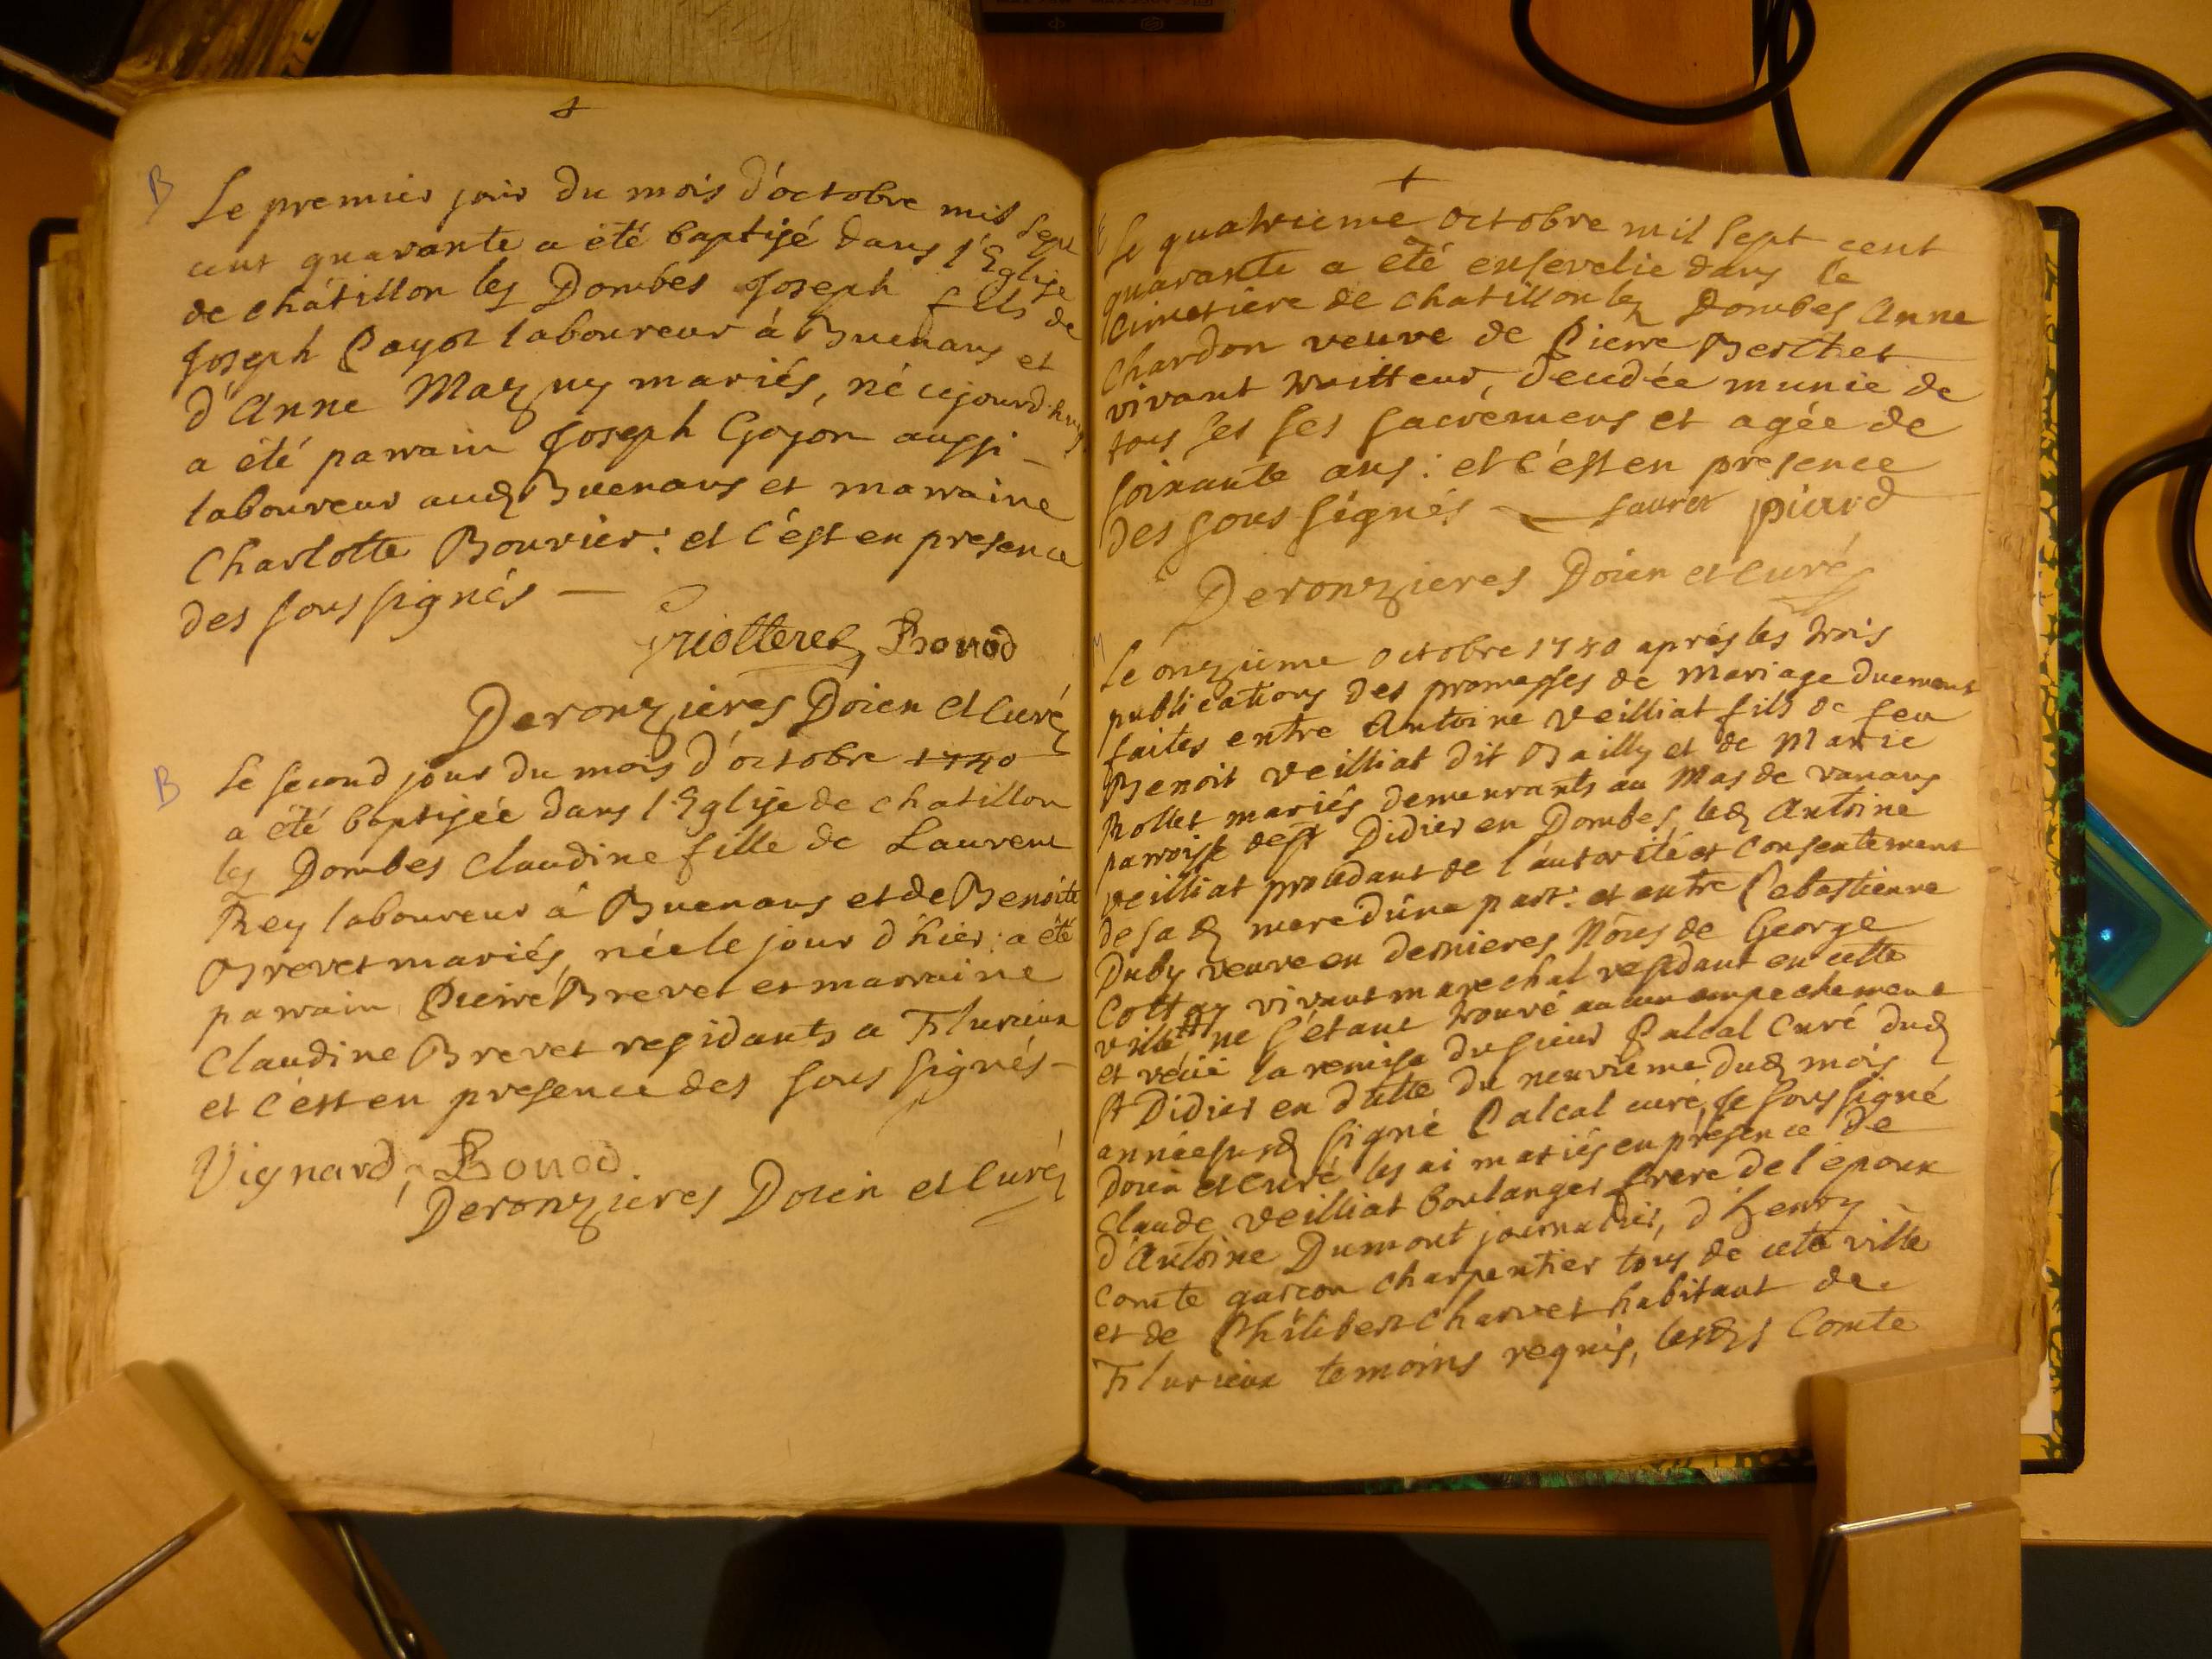 B
Le premier jour du mois d'octobre mil sept
cent quarante a été baptisé dans l'Eglise
de châtillon les Dombes Joseph fils de
Joseph Payot laboureur à Buenans et
d'Anne Mazuy mariés, né cejourd'huy
a été parrain Joseph Gojon aussi
laboureur aud Buenans et marraine
Charlotte Bouvier: et c'est en presence
des sous signés —
Bonod
Deronzieres Doien et Curé
B
Le second jour du mois d'octobre 1740
a été baptisée dans l'Eglise de chatillon
les Dombes Claudine fille de Laurent
Rey laboureur à Buenans et de Benoite
Brevet mariés, née le jour d'hier: a été
parrain Pierre Brevet et marraine
Claudine Brevet residants a Flurieux
et c'est en presence des sous signés —
Vignard, Bonod.
Deronzieres Doien et Curé
Le quatrieme octobre mil sept cent
quarante a été ensevelie dans le
cimetiere de chatillon les Dombes Anne
Chardon veuve de Pierre Berthet
vivant traitteur, decedée munie de
tous ses sacrémens et agée de
soixante ans: et c'est en presence
des sous signés — Sauret piard
Deronzieres Doien et Curé
M
Le onzieme octobre 1740 aprés les trois
publications des promesses de mariage duement
faites entre Antoine Veilliat fils de feu
Benoit Veilliat dit Bailly et de Marie
Rollet mariés demeurants au Mas de vanans
parroisse de st Didier en Dombes, led Antoine
veilliat procedant de l'autorité et consentement
de sad mere d'une part: et entre Sebastienne
Duby veuve en dernieres Nôces de George
Cottay vivant marechal residant en cette
ville ne s'étant trouvé aucun empechement
et veüe la remise du sieur Palcal Curé dud
st Didier en datte du neuvieme dud mois
année susd signé Palcal curé, Je sous signé
Doien et curé les ai mariés en présence de
Claude Veilliat boulanger frere de l'epoux
d'Antoine Dumont journalier, d'henry
Comte garcon charpentier tous de cete ville
et de Philibert Charvet habitant de
Flurieux temoins requis, lesds Comte